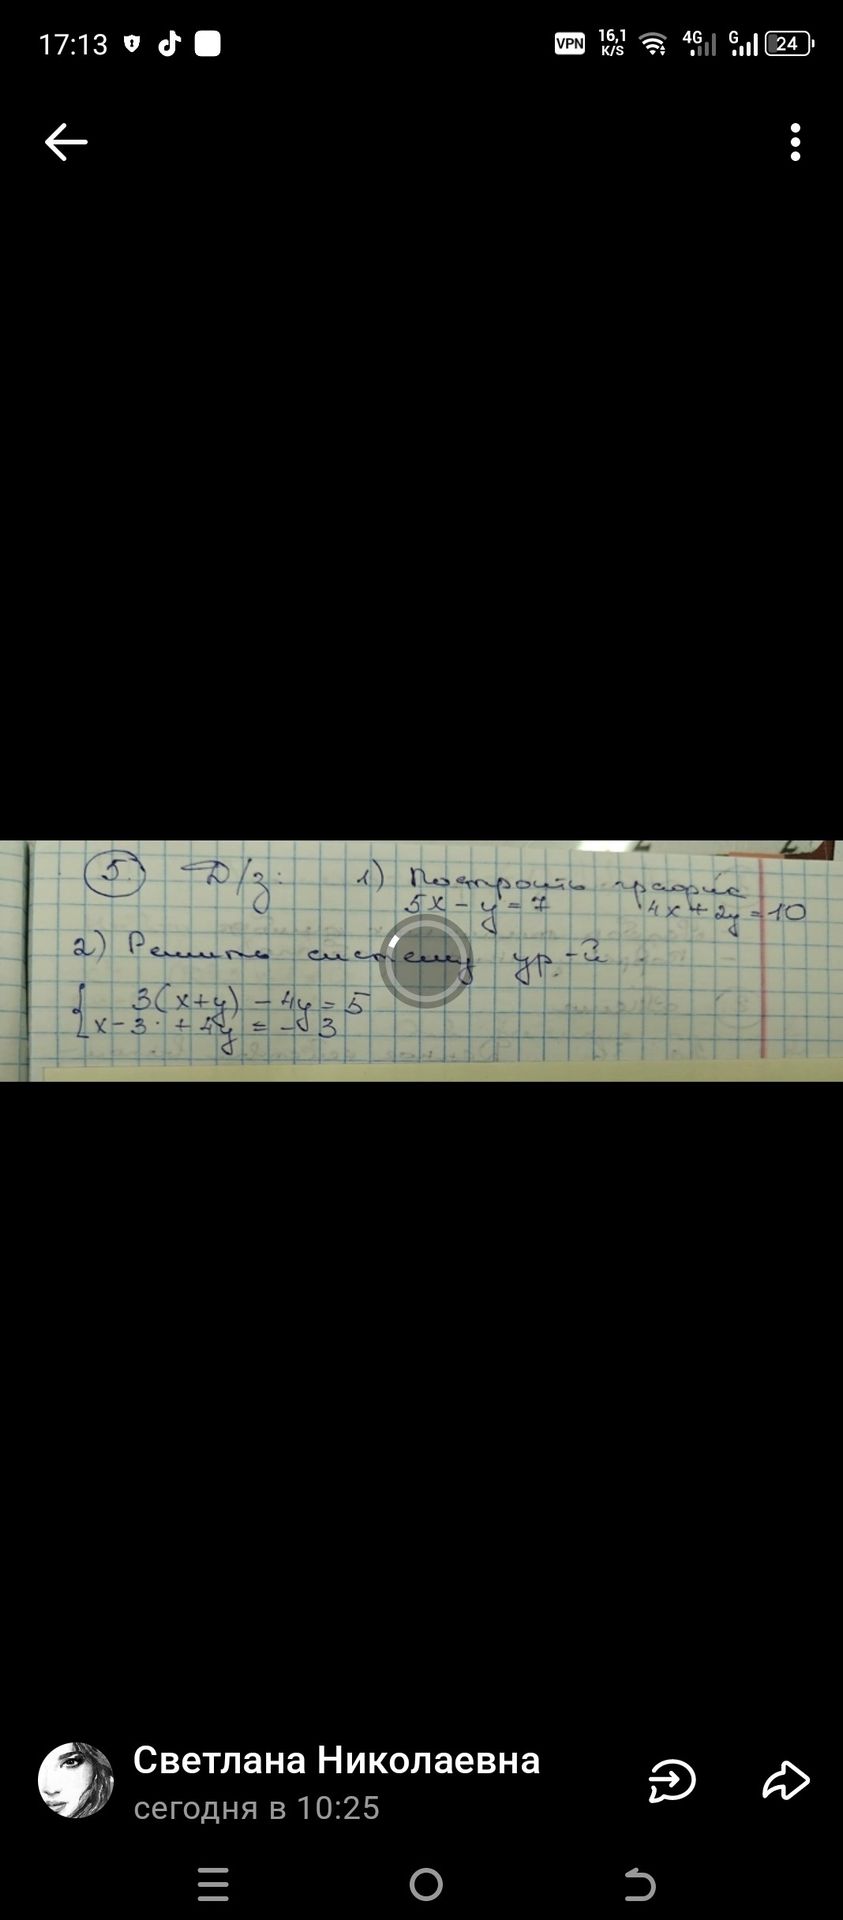 17:13
VPN 16,1 K/S 4G G 24
5. Д/з: 1) Построить график
5x - y = 7 4x + 2y = 10
2) Решить систему ур-й
3(x+y) - 4y = 5
x - 3 · + 4y = - 3
Светлана Николаевна
сегодня в 10:25